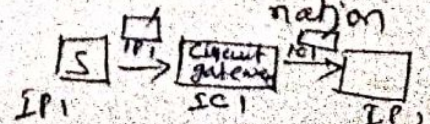 nation
S
IP1
Circuit
gateway
IP1
SC1
IP1